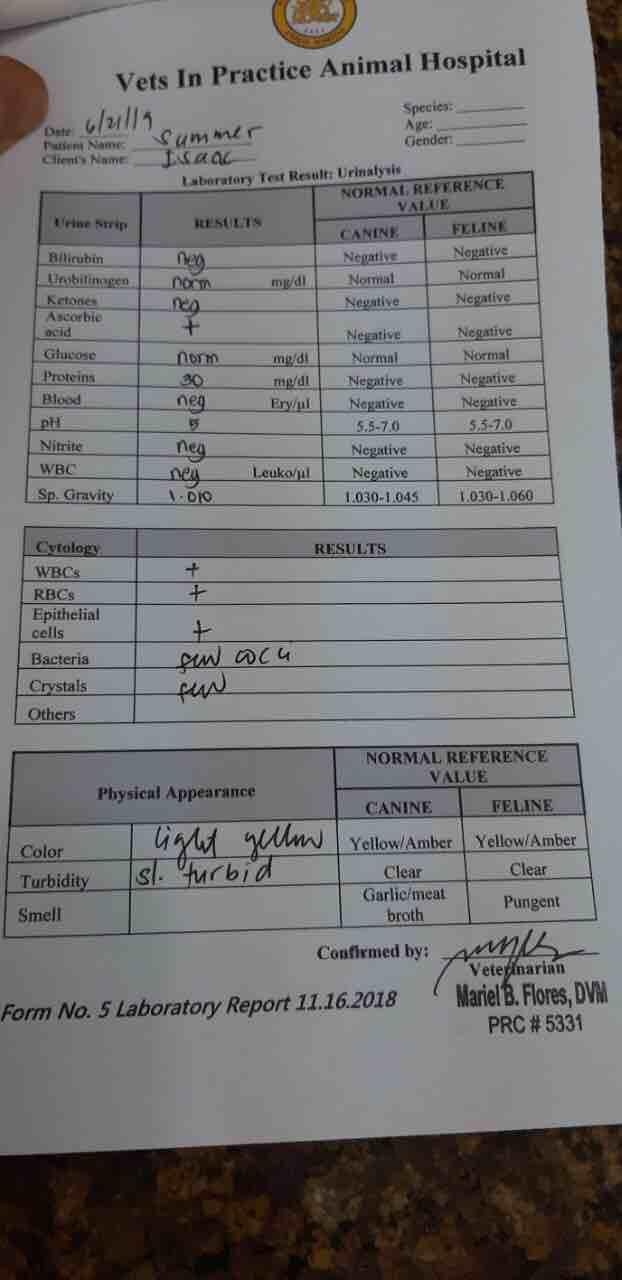 Vets In Practice Animal Hospital
Date: 6/21/19 Species:
Patient Name: Summer Age:
Client's Name: Isaac Gender:
Laboratory Test Result: Urinalysis
Urine Strip RESULTS NORMAL REFERENCE VALUE
CANINE FELINE
Bilirubin neg Negative Negative
Urobilinogen norm mg/dl Normal Normal
Ketones neg Negative Negative
Ascorbic acid + Negative Negative
Glucose norm mg/dl Normal Normal
Proteins 30 mg/dl Negative Negative
Blood neg Ery/µl Negative Negative
pH 5 5.5-7.0 5.5-7.0
Nitrite neg Negative Negative
WBC neg Leuko/µl Negative Negative
Sp. Gravity 1.010 1.030-1.045 1.030-1.060
Cytology RESULTS
WBCs +
RBCs +
Epithelial cells +
Bacteria few cocci
Crystals few
Others
Physical Appearance NORMAL REFERENCE VALUE
CANINE FELINE
Color light yellow Yellow/Amber Yellow/Amber
Turbidity sl. turbid Clear Clear
Smell Garlic/meat broth Pungent
Confirmed by:
Veterinarian
Mariel B. Flores, DVM
PRC # 5331
Form No. 5 Laboratory Report 11.16.2018